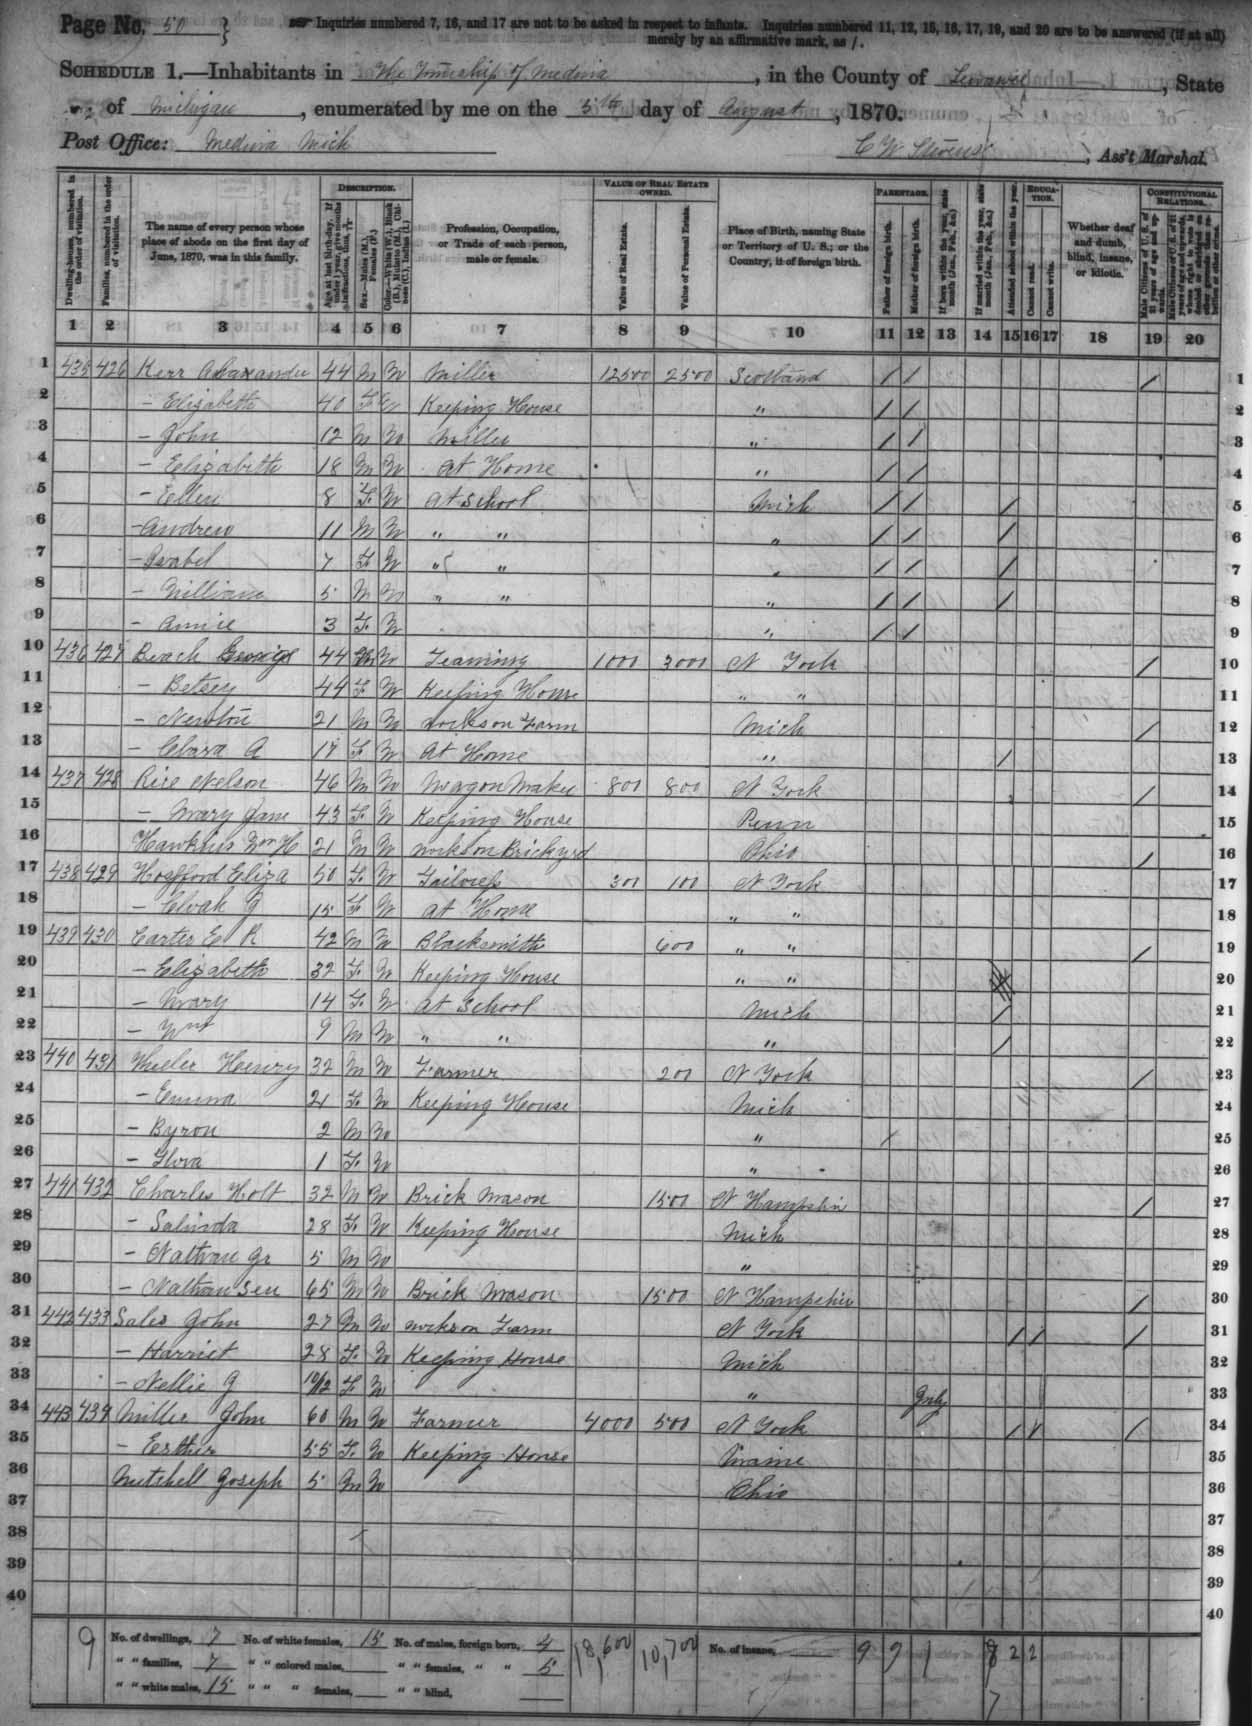 Page No. 50
Inquiries numbered 7, 16, and 17 are not to be asked in respect to infants. Inquiries numbered 11, 12, 15, 16, 17, 19, and 20 are to be answered (if at all)
merely by an affirmative mark, as /.
SCHEDULE 1.—Inhabitants in The Township of Medina, in the County of Lenawee, State
of Michigan, enumerated by me on the 5th day of August, 1870.
Post Office: Medina Mich
C W Stevens, Ass't Marshal.
Dwelling-houses, numbered in the order of visitation.
Families, numbered in the order of visitation.
The name of every person whose place of abode on the first day of June, 1870, was in this family.
DESCRIPTION.
Age at last birth-day. If under 1 year, give months in fractions, thus, 3/12
Sex.—Males (M.), Females (F.)
Color.—White (W.), Black (B.), Mulatto (M.), Chinese (C.), Indian (I.)
Profession, Occupation, or Trade of each person, male or female.
VALUE OF REAL ESTATE OWNED.
Value of Real Estate.
Value of Personal Estate.
Place of Birth, naming State or Territory of U. S.; or the Country, if of foreign birth.
PARENTAGE.
Father of foreign birth.
Mother of foreign birth.
If born within the year, state month (Jan., Feb., &c.)
If married within the year, state month (Jan., Feb., &c.)
EDUCATION.
Attended school within the year.
Cannot read.
Cannot write.
Whether deaf and dumb, blind, insane, or idiotic.
CONSTITUTIONAL RELATIONS.
Male Citizens of U. S. of 21 years of age and upwards.
1 2 3 4 5 6 7 8 9 10 11 12 13 14 15 16 17 18 19 20
1 435 426 Kerr Alaxander 44 M W Miller 12500 2500 Scotland / / / 1
2 — Elizabeth 40 F W Keeping House " / / 2
3 — John 12 M W Miller " / / 3
4 — Elizabeth 18 M W At Home " / / 4
5 — Ellen 8 F W At School Mich / / / 5
6 — Andrew 11 M W " " " / / / 6
7 — Isabel 7 F W " " " / / / 7
8 — William 5 M W " " " / / / 8
9 — Annie 3 F W " / / 9
10 436 427 Beach George 44 M W Teaming 1000 3000 N York / 10
11 — Betsey 44 F W Keeping House " " 11
12 — Newton 21 M W works on Farm Mich / 12
13 — Clara A 17 F W At Home " / 13
14 437 428 Rice Nelson 46 M W Wagon Maker 800 800 N York / 14
15 — Mary Jane 43 F W Keeping House Penn 15
16 Hawkins Wm H 21 M W works on Brickyrd Ohio / 16
17 438 429 Hosfford Eliza 50 F W Tailoress 300 100 N York 17
18 — G 15 F W At Home " " 18
19 439 430 Carter E R 42 M W Blacksmith 600 " " / 19
20 — Elizabeth 32 F W Keeping House " " 20
21 — Mary 14 F W At School Mich / 21
22 — Wm 9 M W " " " / 22
23 440 431 Wheeler Henry 32 M W Farmer 200 N York / 23
24 — Emma 21 F W Keeping House Mich 24
25 — Byron 2 M W " / 25
26 — Flora 1 F W " 26
27 441 432 Charles Holt 32 M W Brick Mason 1500 N Hampshir / 27
28 — Salinda 28 F W Keeping House Mich 28
29 — Nathan Jr 5 M W " 29
30 — Nathan Sen 65 M W Brick Mason 1500 N Hampshir / 30
31 442 433 Sales John 27 M W works on Farm N York / / / 31
32 — Harriet 28 F W Keeping House Mich 32
33 — Nellie J 10/12 F W " July 33
34 443 434 Miller John 60 M W Farmer 4000 500 N York / / / 34
35 — Esther 55 F W Keeping House Maine 35
36 Mitchell Joseph 5 M W Ohio 36
37 37
38 38
39 39
40 40
9 No. of dwellings, 7 No. of white females, 15 No. of males, foreign born, 4 18,600 10,700 No. of insane, 9 9 1 8 2 2
" " families, 7 " " colored males, " " females, " " 5
" " white males, 15 " " " females, " " blind, 7